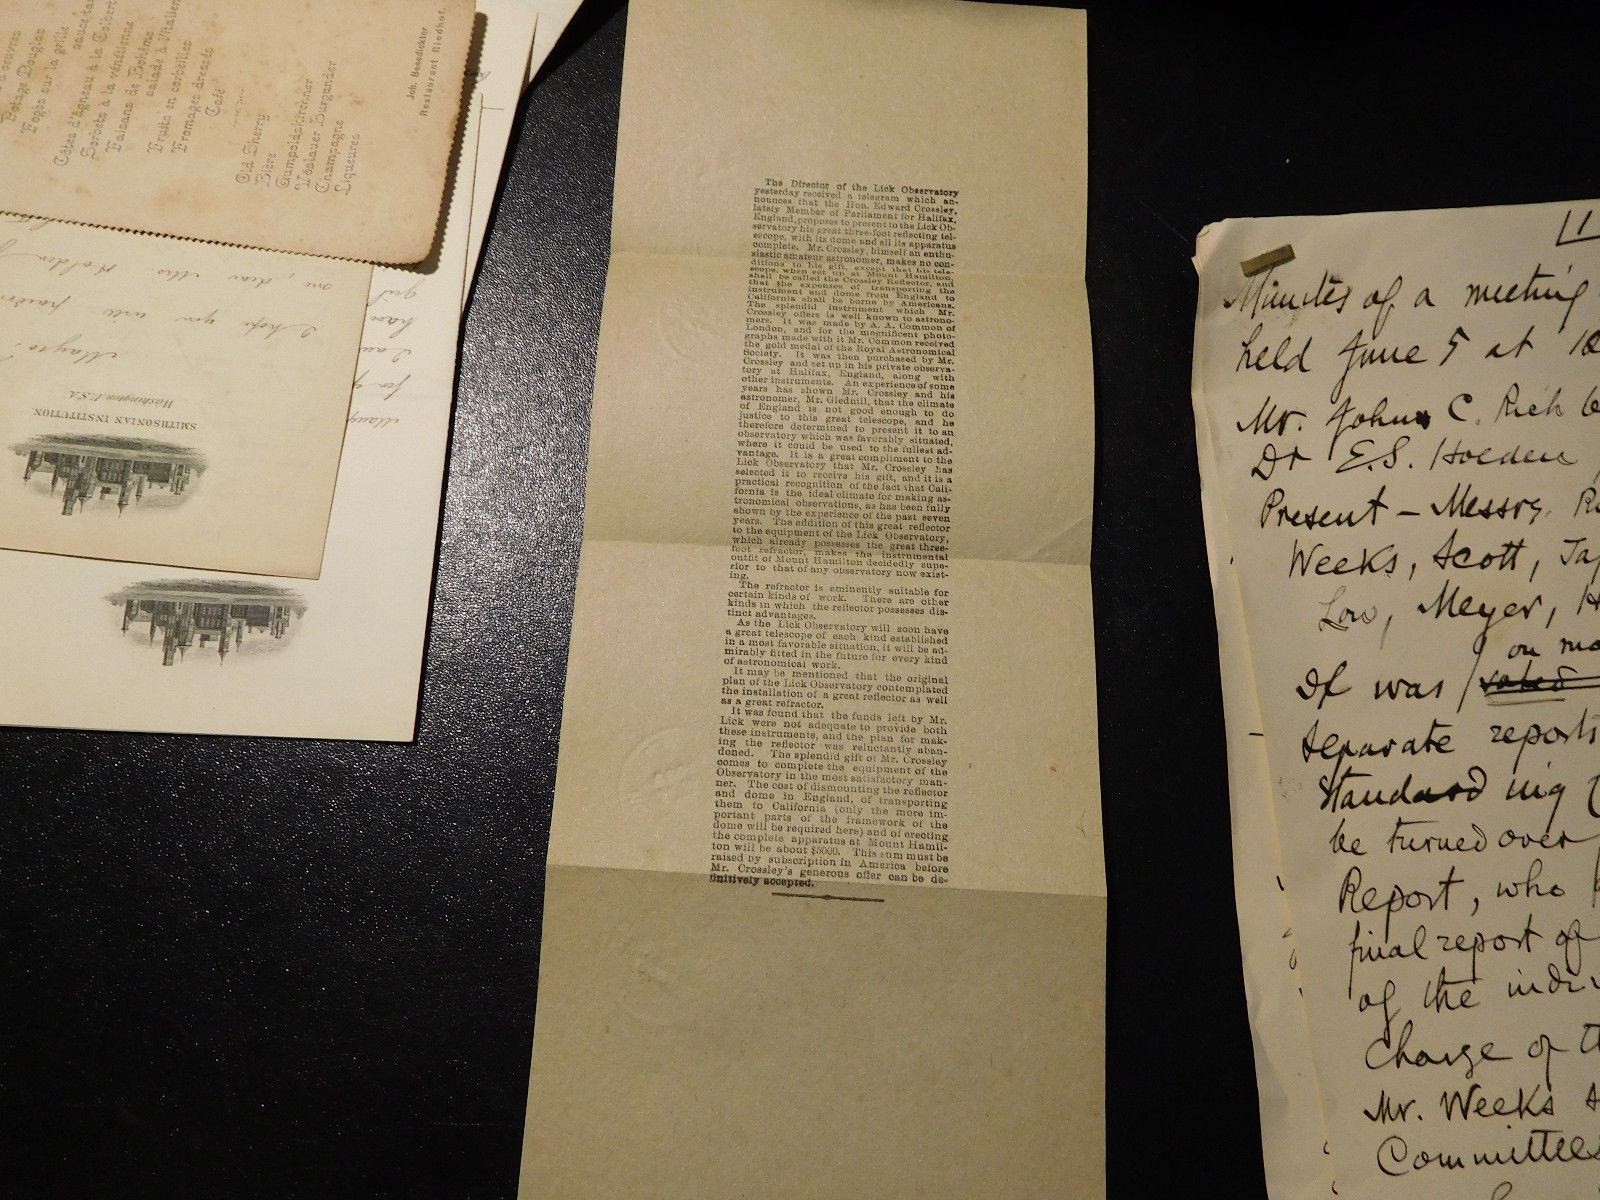 Potage Douglas
Fogos sur la grille
sauce tar
Côtes d'agneau à la Colbert
Sorbets à la vénétienne
Faisans de Bohême
salade à l'italien
Fruits en corbeilles
Fromages dressés
Café
Old Sherry
Bière
Gumpoldskirchner
Vöslauer Burgunder
Champagne
Liqueures
Joh. Benedickter
Restaurant Riedhof.
SMITHSONIAN INSTITUTION
Washington, U.S.A.
I hope you will
one, dear Mrs. Holden
The Director of the Lick Observatory
yesterday received a telegram which an-
nounces that the Hon. Edward Crossley,
lately Member of Parliament for Halifax,
England, proposes to present to the Lick Ob-
servatory his great three-foot reflecting tel-
escope, with its dome and all its apparatus
complete. Mr. Crossley, himself an enthu-
siastic amateur astronomer, makes no con-
ditions to his gift, except that his tele-
scope, when set up at Mount Hamilton,
shall be called the Crossley Reflector, and
that the expenses of transporting the
instrument and dome from England to
California shall be borne by Americans.
The splendid instrument which Mr.
Crossley offers is well known to astrono-
mers. It was made by A. A. Common of
London, and for the magnificent photo-
graphs made with it Mr. Common received
the gold medal of the Royal Astronomical
Society. It was then purchased by Mr.
Crossley and set up in his private observa-
tory at Halifax, England, along with
other instruments. An experience of some
years has shown Mr. Crossley and his
astronomer, Mr. Gledhill, that the climate
of England is not good enough to do
justice to this great telescope, and he
therefore determined to present it to an
observatory which was favorably situated,
where it could be used to the fullest ad-
vantage. It is a great compliment to the
Lick Observatory that Mr. Crossley has
selected it to receive his gift, and it is a
practical recognition of the fact that Cali-
fornia is the ideal climate for making as-
tronomical observations, as has been fully
shown by the experience of the past seven
years. The addition of this great reflector
to the equipment of the Lick Observatory,
which already possesses the great three-
foot refractor, makes the instrumental
outfit of Mount Hamilton decidedly supe-
rior to that of any observatory now exist-
ing.
The refractor is eminently suitable for
certain kinds of work. There are other
kinds in which the reflector possesses dis-
tinct advantages.
As the Lick Observatory will soon have
a great telescope of each kind established
in a most favorable situation, it will be ad-
mirably fitted in the future for every kind
of astronomical work.
It may be mentioned that the original
plan of the Lick Observatory contemplated
the installation of a great reflector as well
as a great refractor.
It was found that the funds left by Mr.
Lick were not adequate to provide both
these instruments, and the plan for mak-
ing the reflector was reluctantly aban-
doned. The splendid gift of Mr. Crossley
comes to complete the equipment of the
Observatory in the most satisfactory man-
ner. The cost of dismounting the reflector
and dome in England, of transporting
them to California (only the more im-
portant parts of the framework of the
dome will be required here) and of erecting
the complete apparatus at Mount Hamil-
ton will be about $5000. This sum must be
raised by subscription in America before
Mr. Crossley's generous offer can be de-
finitively accepted.
1
Minutes of a meeting
held June 5 at
Mr. John C. Rich
Dr E.S. Holden
Present – Messrs.
Weeks, Scott,
Low, Meyer,
on
It was voted
separate reports
Standing
be turned over
Report, who
final report of
of the
charge of
Mr. Weeks
Committee